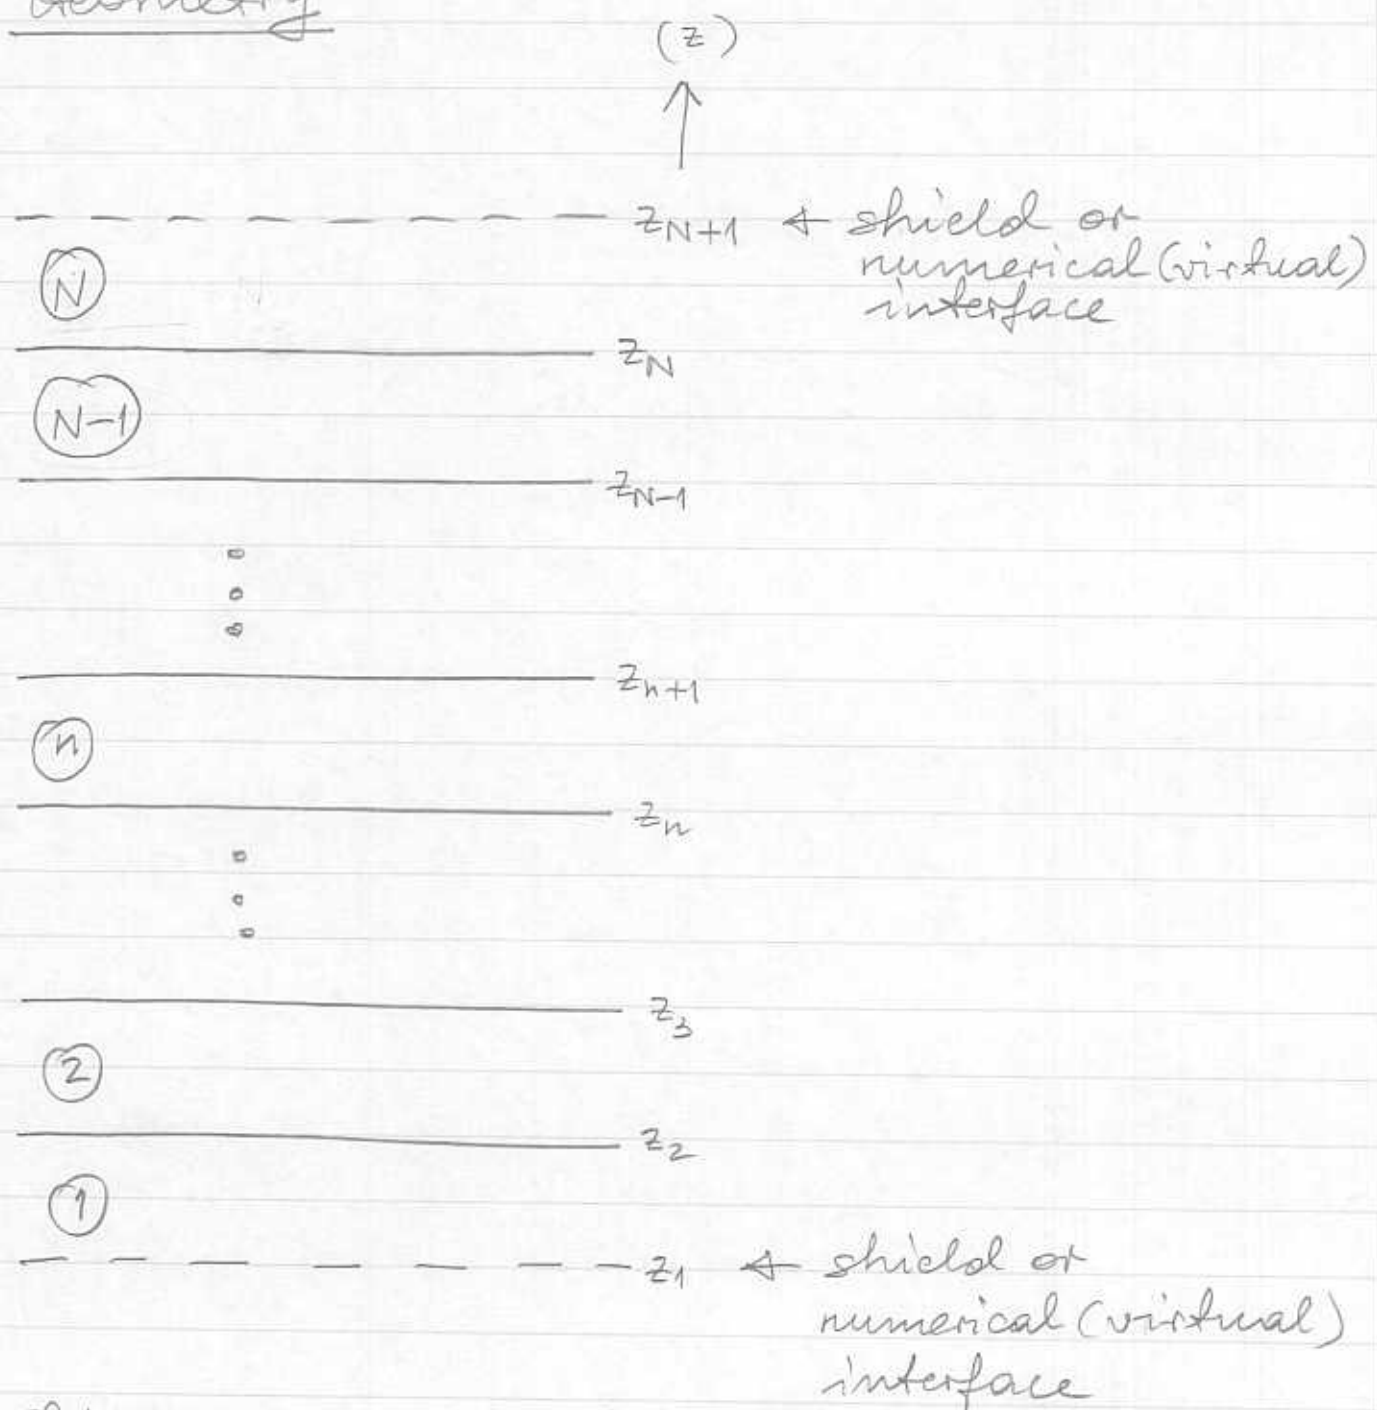 Geometry
(z)
z_{N+1} ← shield or
numerical (virtual)
interface
N
z_N
N-1
z_{N-1}
z_{n+1}
n
z_n
z_3
2
z_2
1
z_1 ← shield or
numerical (virtual)
interface